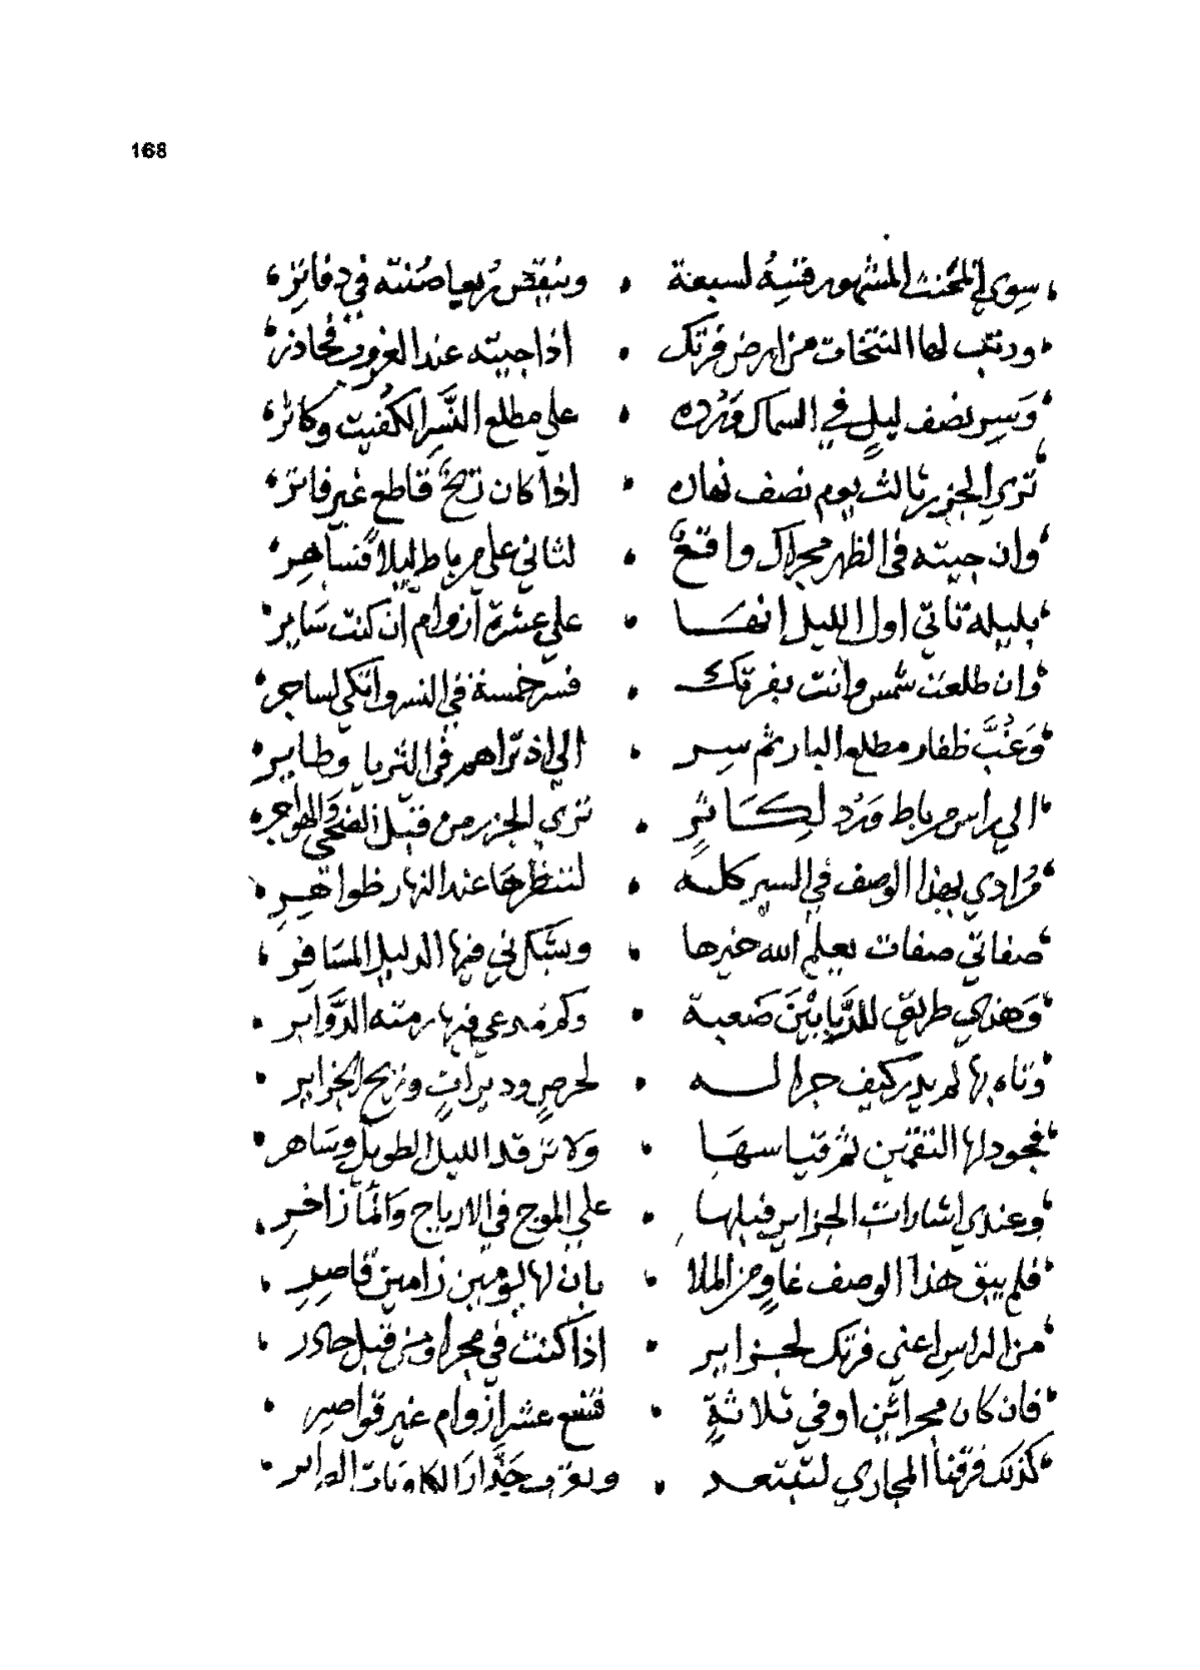 168
سوى المحنث المشهور قسه لسبعة • وينقص ربعا صنته في دفاتر
ورتب لها النتخات من ارض فرتك • اذا جيته عند الغزور فحاذر
وسر نصف ليل في السماك ورده • على مطلع النسر الكفيت وكاثر
ترى الجزر ثالث يوم نصف نهاره • اذا كان ريح قاطع غير فاتر
وان جيته في الظهر مجراك واقع • لثاني على رباط ليلا فساهر
بليلة تاتي اول الليل انفا • على عشرة ازوام ان كنت ساير
وان طلعت شمس وانت بفرتك • فسر خمسة في النسر واتكي لساجر
وغب ظفار مطلع البار ثم سر • الى اذ تراهم في الثريا وطاير
الى راس رباط ورد لكاثر • ترى الجزر من قبل الضحى والهواجر
مرادي بهذا الوصف في السير كله • لتنظرها عند النهار ظواهر
صفاتي صفات يعلم الله خيرها • ويشكرني فيها الدليل المسافر
وهذي طريق للربابين صعبة • وكم مدعي فيها رمته الدواير
وتاه بها لم يدر كيف جرا له • لحرص وديرات وريح الجزاير
فجود لها النتقتين ثم قياسها • ولا ترقد الليل الطويل وساهر
وعندي اشارات الجزاير قبلها • على الموج في الارياح والما زاخر
فلم يبق هذا الوصف غاو من الملا • بان لها يومين زامين قاصر
من الراس اعني فرتك لجزاير • اذا كنت في مجراه من قبل حادر
فان كان مجرائين او في ثلاثة • فتسع عشر ازوام غير قواصر
كذلك فرقنا المجاري لتبتعد • وتعرف حدار الكاوتات الداير